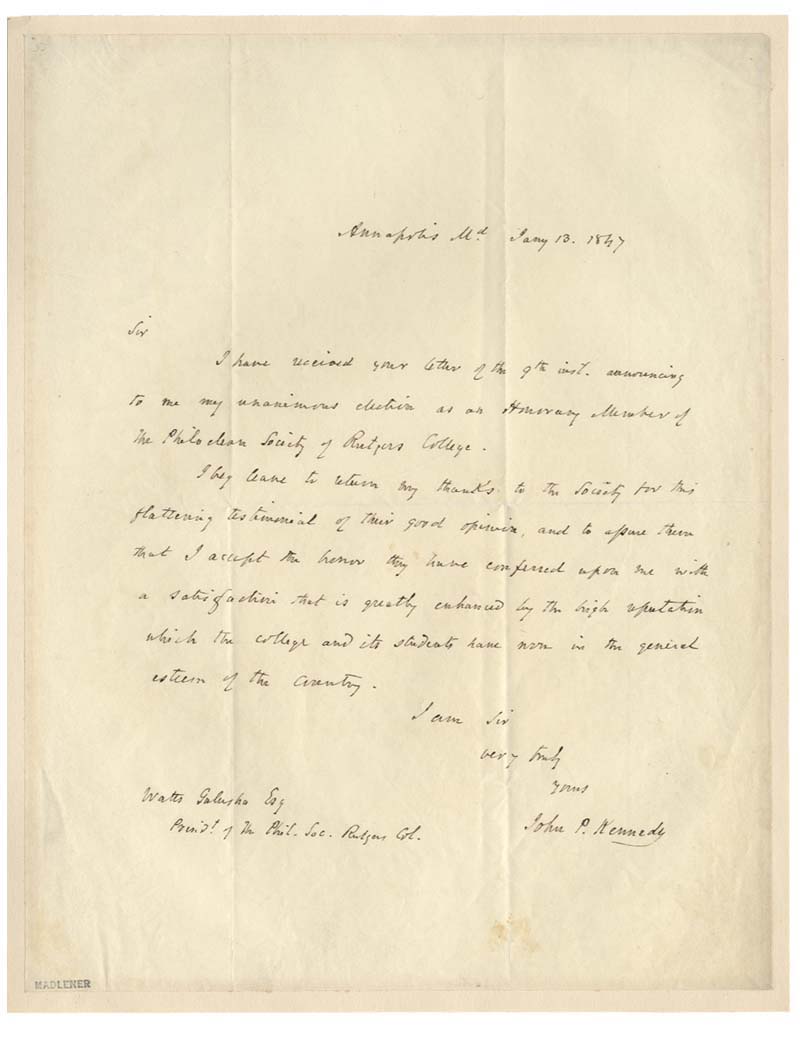 Annapolis Md. Jany 13. 1847
Sir
I have received your letter of the 9th inst. announcing
to me my unanimous election as an Honorary Member of
the Philoclean Society of Rutgers College.
I beg leave to return my thanks to the Society for this
flattering testimonial of their good opinion, and to assure them
that I accept the honor they have conferred upon me with
a satisfaction that is greatly enhanced by the high reputation
which the college and its students have now in the general
esteem of the country.
I am Sir
very truly
yours
John P. Kennedy
Watts Galusha Esq
Presidt. of the Phil. Soc. Rutgers Col.
MADLENER